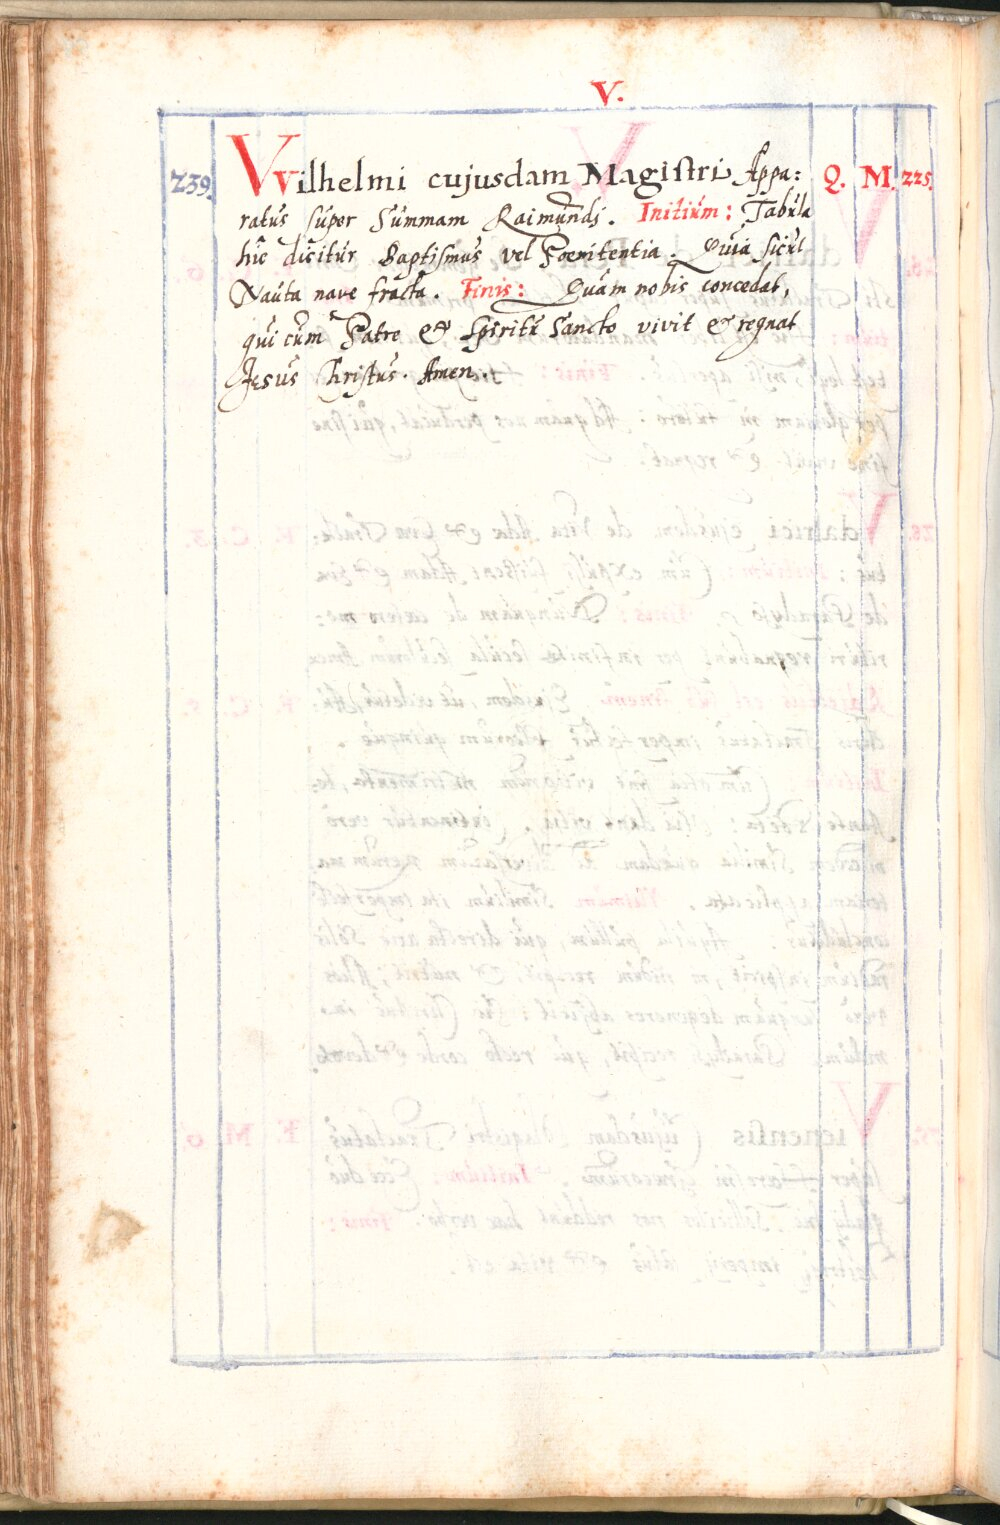 V.
239. VVilhelmi cujusdam Magistri Appa: Q. M. 225.
ratus super Summam Raimundi. Initium: Tabula
hic dicitur Baptismus vel Poenitentia. Quia sicut
Nauta nave fracta. Finis: Quam nobis concedat,
qui cum Patre et Spiritu Sancto vivit et regnat
Jesus Christus. Amen.